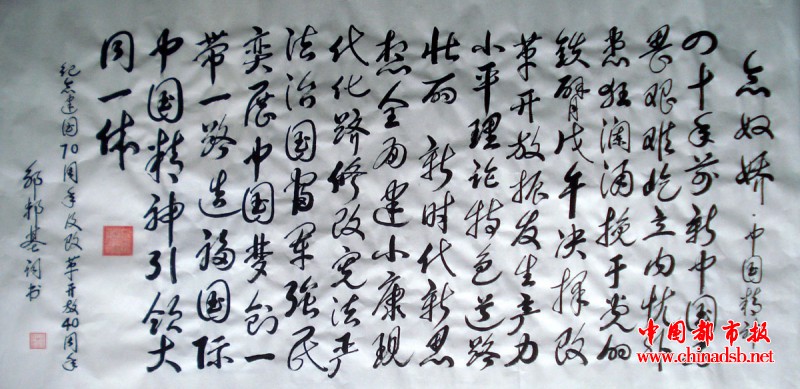 念奴娇·中国精神
四十年前新中国无
畏艰难屹立内忧外
患狂澜涌挽于党的
铁臂戊午决择改
革开放振发生产力
小平理论特色道路
壮丽 新时代新思
想全面建小康现
代化跻修改宪法严
法治国富军强民
奕展中国梦创一
带一路造福国际
中国精神引领大
同一体
纪念建国70周年及改革开放40周年
邦基词书
中国都市报
www.chinadsb.net